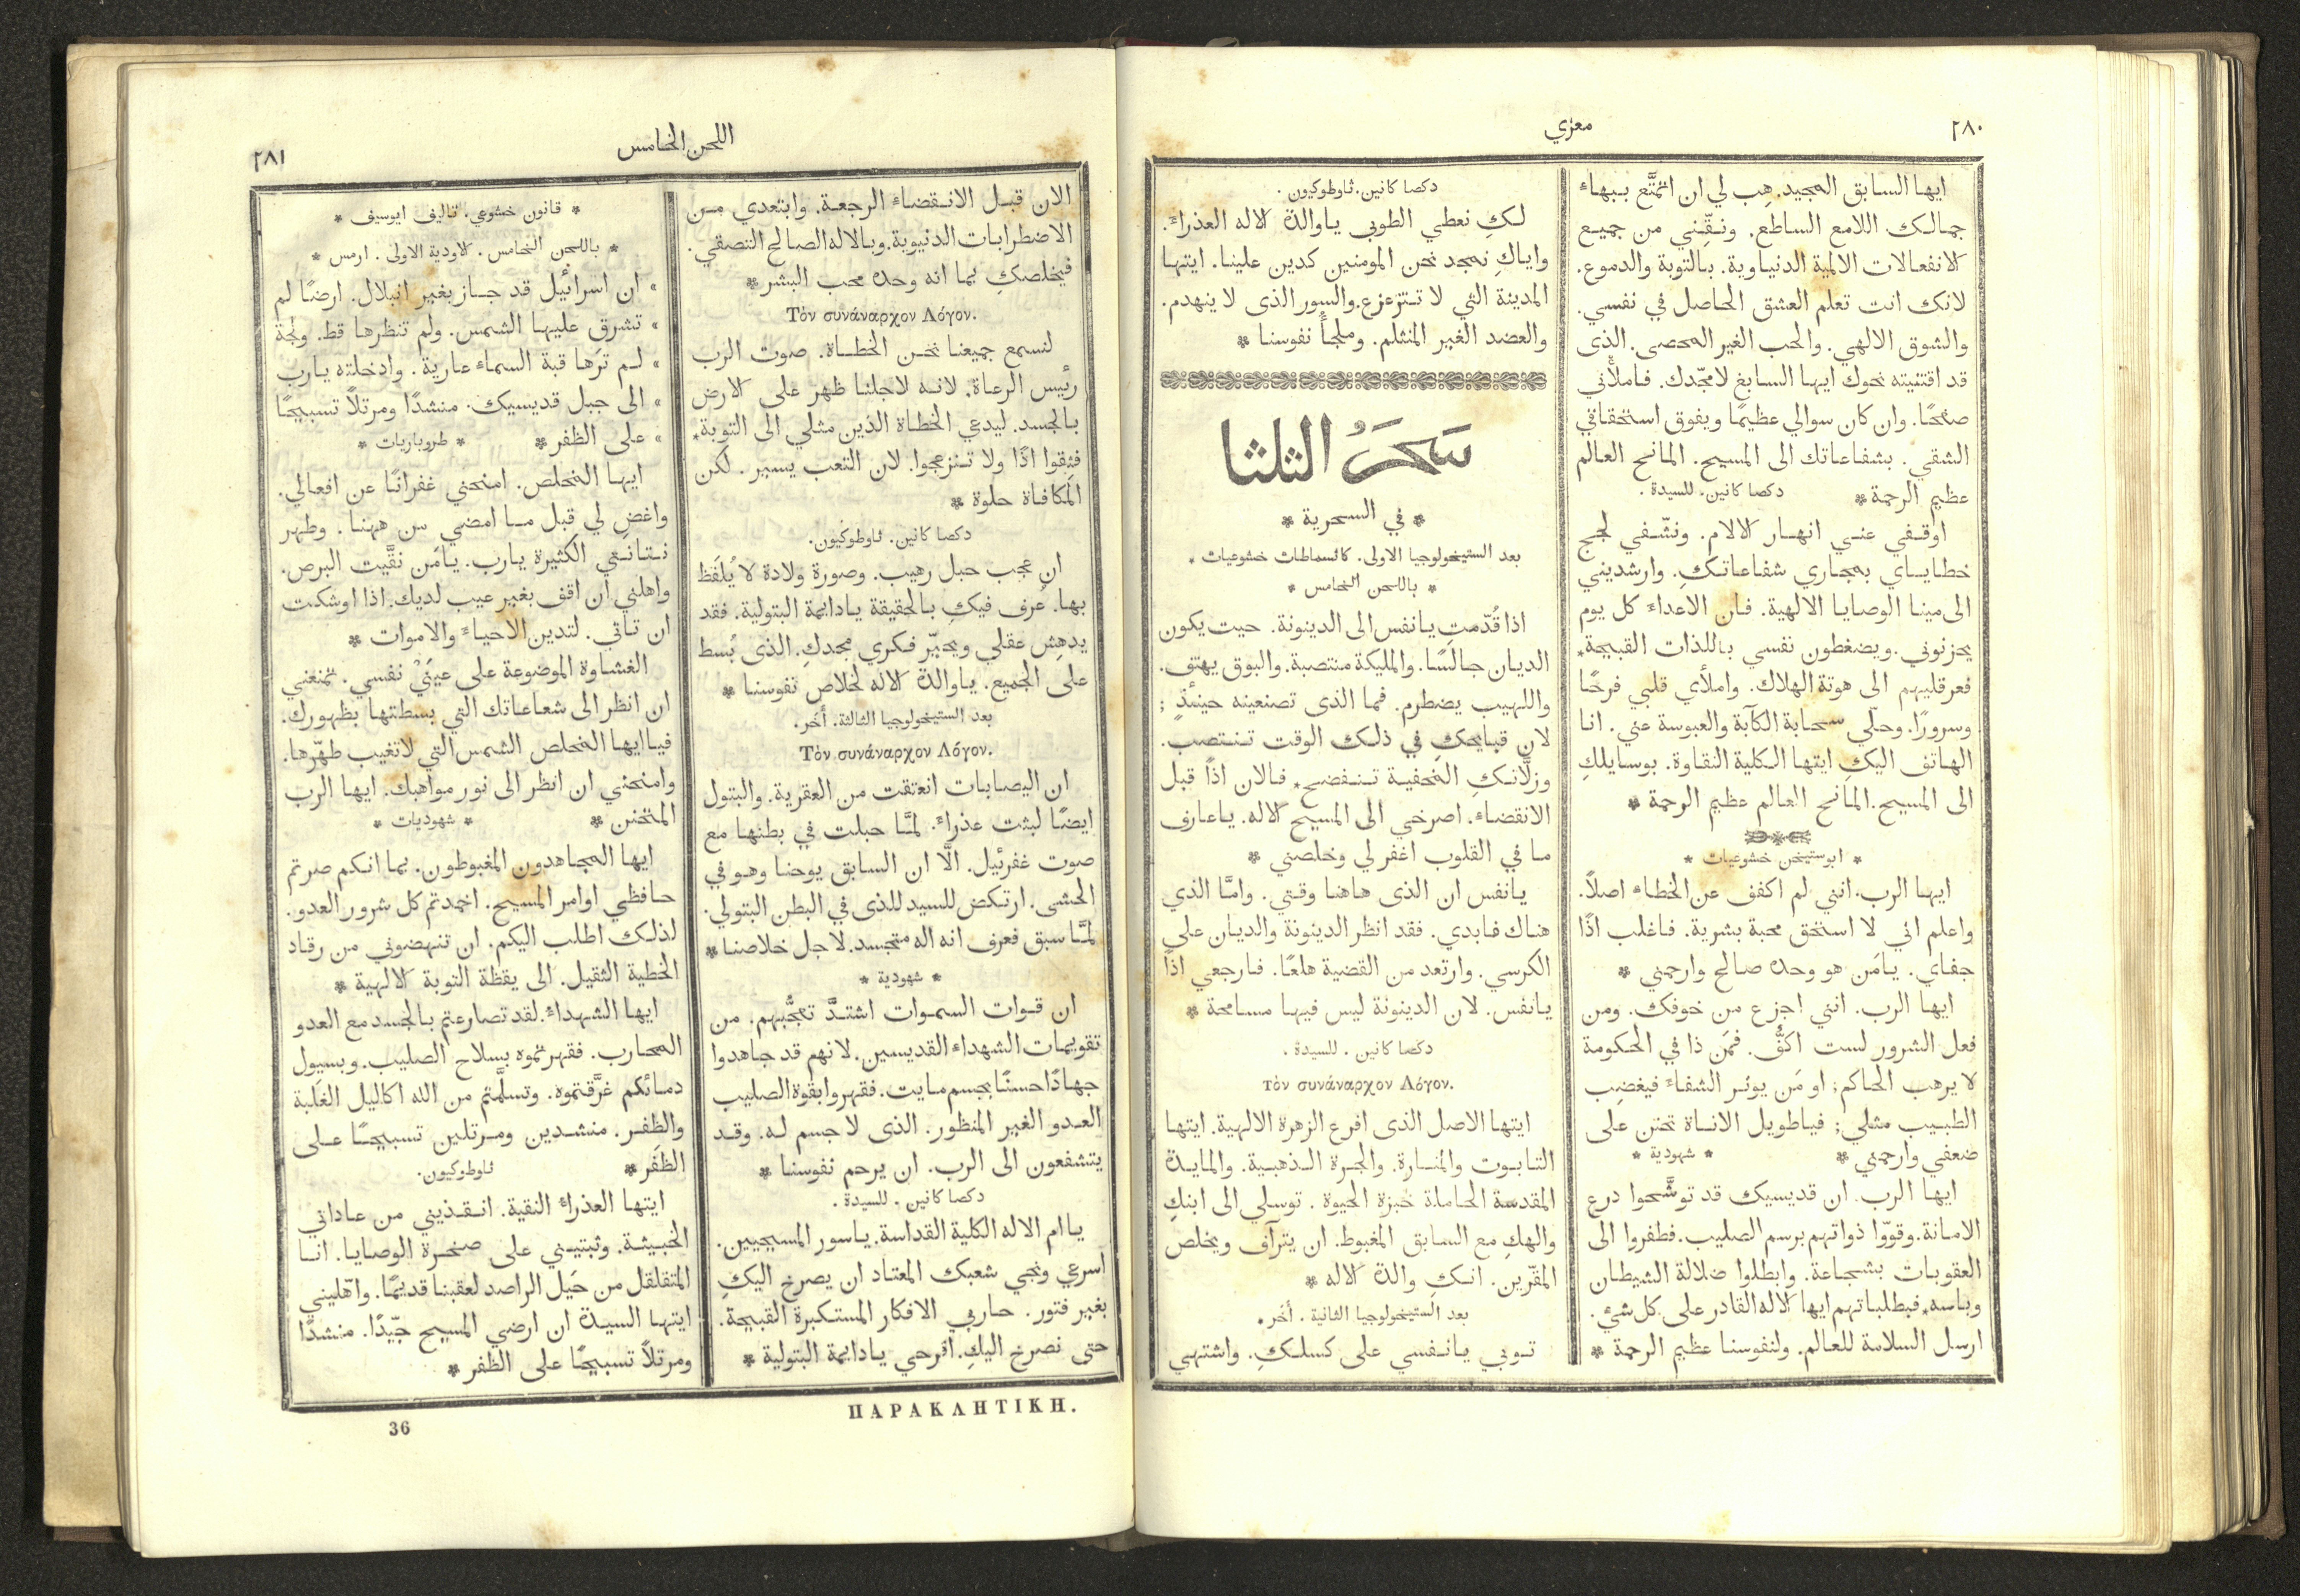 ٢٨٠
معزي
ايها السابق المجيد. هِب لي ان اتمتَّع ببهاء
جمالك اللامع الساطع. ونقِّني من جميع
الانفعالات الالمية الدنياوية. بالتوبة والدموع.
لانك انت تعلم العشق الحاصل في نفسي.
والشوق الالهي. والحب الغير المحصى. الذى
قد اقتنيته نحوك ايها السابغ لامجّدك. فاملأني
صلحًا. وان كان سوالي عظيمًا ويفوق استحقاقي
الشقي. بشفاعاتك الى المسيح. المانح العالم
عظيم الرحمة * دكصا كانين. للسيدة.
اوقفي عني انهار الالام. ونشّفي لجج
خطاياي بمجاري شفاعاتكِ. وارشديني
الى مينا الوصايا الالهية. فان الاعداء كل يوم
يحزنوني. ويضغطون نفسي باللذات القبيحة*
فعرقليهم الى هوتة الهلاك. واملأي قلبي فرحًا
وسرورًا. وحلّي سحابة الكآبة والعبوسة عني. انا
الهاتف اليكِ ايتها الكلية النقاوة. بوسايلكِ
الى المسيح. المانح العالم عظيم الرحمة *
* ابوستيخن خشوعيات *
ايها الرب. انني لم اكفف عن الخطاء اصلاً.
واعلم اني لا استحق محبة بشرية. فاغلب اذًا
جفاي. يامَن هو وحده صالح وارحمني *
ايها الرب. انني اجزع من خوفك. ومن
فعل الشرور لست اكفُّ. فمَن ذا في الحكومة
لا يرهب الحاكم; او مَن يوثر الشفاء فيغضِب
الطبيب مثلي; فياطويل الاناة تحنن على
ضعفي وارحمني * * شهودية *
ايها الرب. ان قديسيك قد توشَّحوا درع
الامانة. وقوّوا ذواتهم برسم الصليب. فطفروا الى
العقوبات بشجاعة. وابطلوا ضلالة الشيطان
وباسه* فبطلباتهم ايها الاله القادر على كل شيء.
ارسل السلامة للعالم. ولنفوسنا عظيم الرحمة *
دكصا كانين. ثاوطوكيون.
لكِ نعطي الطوبى ياوالدة الاله العذراء.
واياكِ نمجد نحن المومنين كدين علينا. ايتها
المدينة التي لا تتزعزع. والسور الذى لا ينهدم.
والعضد الغير المنثلم. وملجأ نفوسنا *
سَحَرُ الثلثا
* في السحرية *
بعد الستيخولوجيا الاولى. كاتسماطات خشوعيات *
* باللحن الخامس *
اذا قُدّمتِ يانفس الى الدينونة. حيت يكون
الديان جالسًا. والمليكة منتصبة. والبوق يهتف.
واللهيب يضطرم. فما الذى تصنعينه حينئذٍ ;
لان قبايحكِ في ذلك الوقت تنتصب.
وزلَّاتكِ المخفية تنفضح* فالان اذًا قبل
الانقضاء. اصرخي الى المسيح الاله. ياعارف
ما في القلوب اغفر لي وخلصني *
يانفس ان الذى هاهنا وقتي. وامَّا الذي
هناك فابدي. فقد انظر الدينونة والديان على
الكرسي. وارتعد من القضية هلعًا. فارجعي اذًا
يانفس. لان الدينونة ليس فيها مسامحة *
دكصا كانين. للسيدة.
Τόν συνάναρχον Λόγον.
ايتها الاصل الذى افرع الزهرة الالهية. ايتها
التابوت والمنارة. والجرة الذهبية. والمايدة
المقدسة الحاملة خبزة الحيوة. توسلي الى ابنكِ
والهكِ مع السابق المغبوط. ان يترآف ويخلص
المقرّين. انكِ والدة الاله *
بعد الستيخولوجيا الثانية. أخَر.
توبي يانفسي على كسلكِ. واشتهي
اللحن الخامس
٢٨١
الان قبل الانقضاء الرجعة. وابتعدي من
الاضطرابات الدنيوية. وبالاله الصالح التصقي.
فيخلصكِ بما انه وحده محب البشر *
Τόν συνάναρχον Λόγον.
لنسمع جميعنا نحن الخطاة. صوت الرب
رئيس الرعاة. لانه لاجلنا ظهر على الارض
بالجسد. ليدعي الخطاة الذين مثلي الى التوبة*
فثِقوا اذًا ولا تنزعجوا. لان التعب يسير. لكن
المكافاة حلوة *
دكصا كانين. ثاوطوكيون.
ان عجب حبل رهيب. وصورة ولادة لا يُلفَظ
بها. عُرف فيكِ بالحقيقة يادايمة البتولية. فقد
يدهِش عقلي ويحيّر فكري مجدكِ. الذى بُسط
على الجميع. ياوالدة الاله لخلاص نفوسنا *
بعد الستيخولوجيا الثالثة. أخَر.
Τόν συνάναρχον Λόγον.
ان اليصابات انعتقت من العقرية. والبتول
ايضًا لبثت عذراء. لمَّا حبلت في بطنها مع
صوت غفرئيل. الَّا ان السابق يوحنا وهو في
الحشى. ارتكض للسيد للذى في البطن البتولي.
لمَّا سبق فعرف انه اله متجسد. لاجل خلاصنا *
* شهودية *
ان قوات السموات اشتدَّ تعجُّبهم. من
تقويمات الشهداء القديسين. لانهم قد جاهدوا
جهادًا حسنًا بجسم مايت. فقهروا بقوة الصليب
العدو الغير المنظور. الذى لا جسم له. وقد
يتشفعون الى الرب. ان يرحم نفوسنا *
دكصا كانين. للسيدة.
ياام الاله الكلية القداسة. ياسور المسيحيين.
اسرعي ونجي شعبك المعتاد ان يصرخ اليكِ
بغير فتور. حاربي الافكار المستكبرة القبيحة.
حتى نصرخ اليكِ. افرحي يادايمة البتولية *
* قانون خشوعي. تاليف ايوسيف *
* باللحن الخامس. الاودية الاولى. ارمس *
» ان اسرائيل قد جاز بغير ابتلال. ارضًا لم
» تشرق عليها الشمس. ولم تنظرها قط. ولجة
» لم ترَها قبة السماء عارية. وادخلته يارب
» الى جبل قديسيك. منشدًا ومرتلاً تسبيحًا
» على الظفر * * طروباريات *
ايها المخلص. امنحني غفرانًا عن افعالي.
واغضِ لي قبل ما امضي من ههنا. وطهر
نتانتي الكثيرة يارب. يامَن نقَّيت البرص.
واهلني ان اقف بغير عيب لديك. اذا اوشكت
ان تاتي. لتدين الاحياء والاموات *
الغشاوة الموضوعة على عينَيْ نفسي. تمنعني
ان انظر الى شعاعاتك التي بسطتها بظهورك.
فياايها المخلص الشمس التي لاتغيب طهّرها.
وامنحني ان انظر الى نور مواهبك. ايها الرب
المتحنن * * شهوديات *
ايها المجاهدون المغبوطون. بما انكم صرتم
حافظي اوامر المسيح. اخمدتم كل شرور العدو.
لذلك اطلب اليكم. ان تنهضوني من رقاد
الخطية الثقيل. الى يقظة التوبة الالهية *
ايها الشهداء. لقد تصارعتم بالجسد مع العدو
المحارب. فقهرتموه بسلاح الصليب. وبسيول
دمائكم غرَّقتموه. وتسلَّمتم من الله اكاليل الغلَبة
والظفر. منشدين ومرتلين تسبيحًا على
الظفَر * ثاوطوكيون.
ايتها العذراء النقية. انقذيني من عاداتي
الخبيثة. وثبتيني على صخرة الوصايا. انا
المتقلقل من حيَل الراصد لعقبنا قديمًا. واهّليني
ايتها السيدة ان ارضي المسيح جيّدًا. منشدًا
ومرتلاً تسبيحًا على الظفر *
ΠΑΡΑΚΛΗΤΙΚΗ.
36